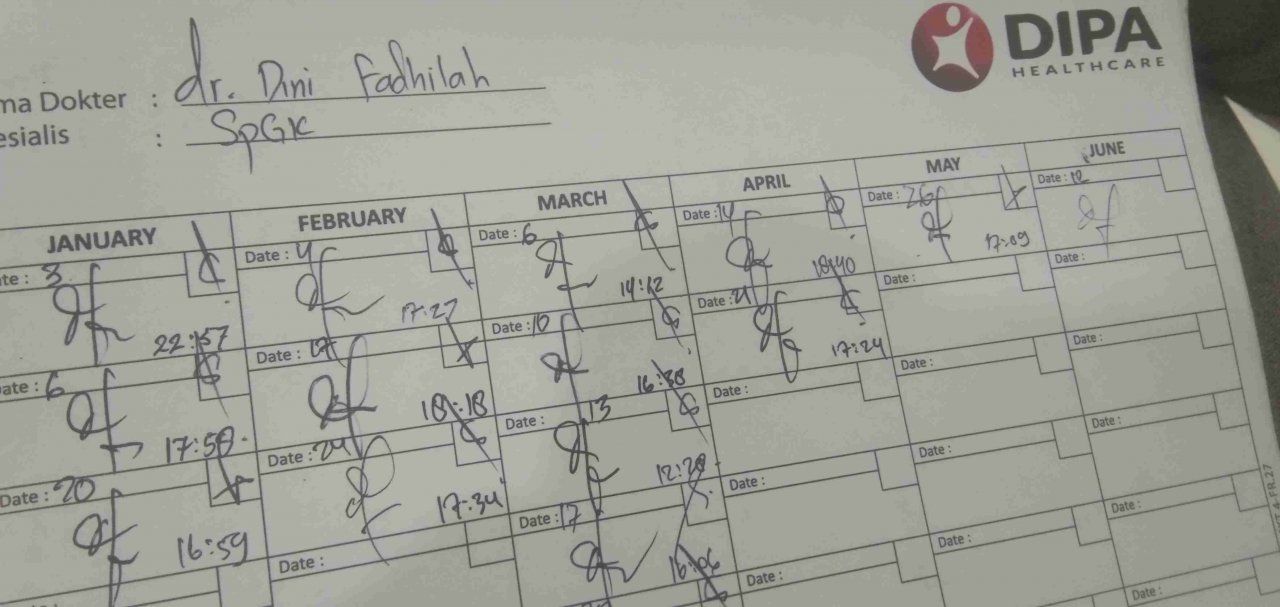 DIPA
HEALTHCARE
ma Dokter : dr. Dini Fadhilah
esialis : SpGK
JANUARY FEBRUARY MARCH APRIL MAY JUNE
te : 3 Date : 4 Date : 6 Date : 14 Date : 26 Date : 12
22:57 17:27 14:12 18:40 17:09
ate : 6 Date : Date : 10 Date : 21 Date : Date :
17:58 18:18 16:38 17:24
Date : 20 Date : 24 Date : 13 Date : Date : Date :
16:59 17:34
Date : Date : 17 Date : Date : Date :
Date : Date : Date :
FR.27